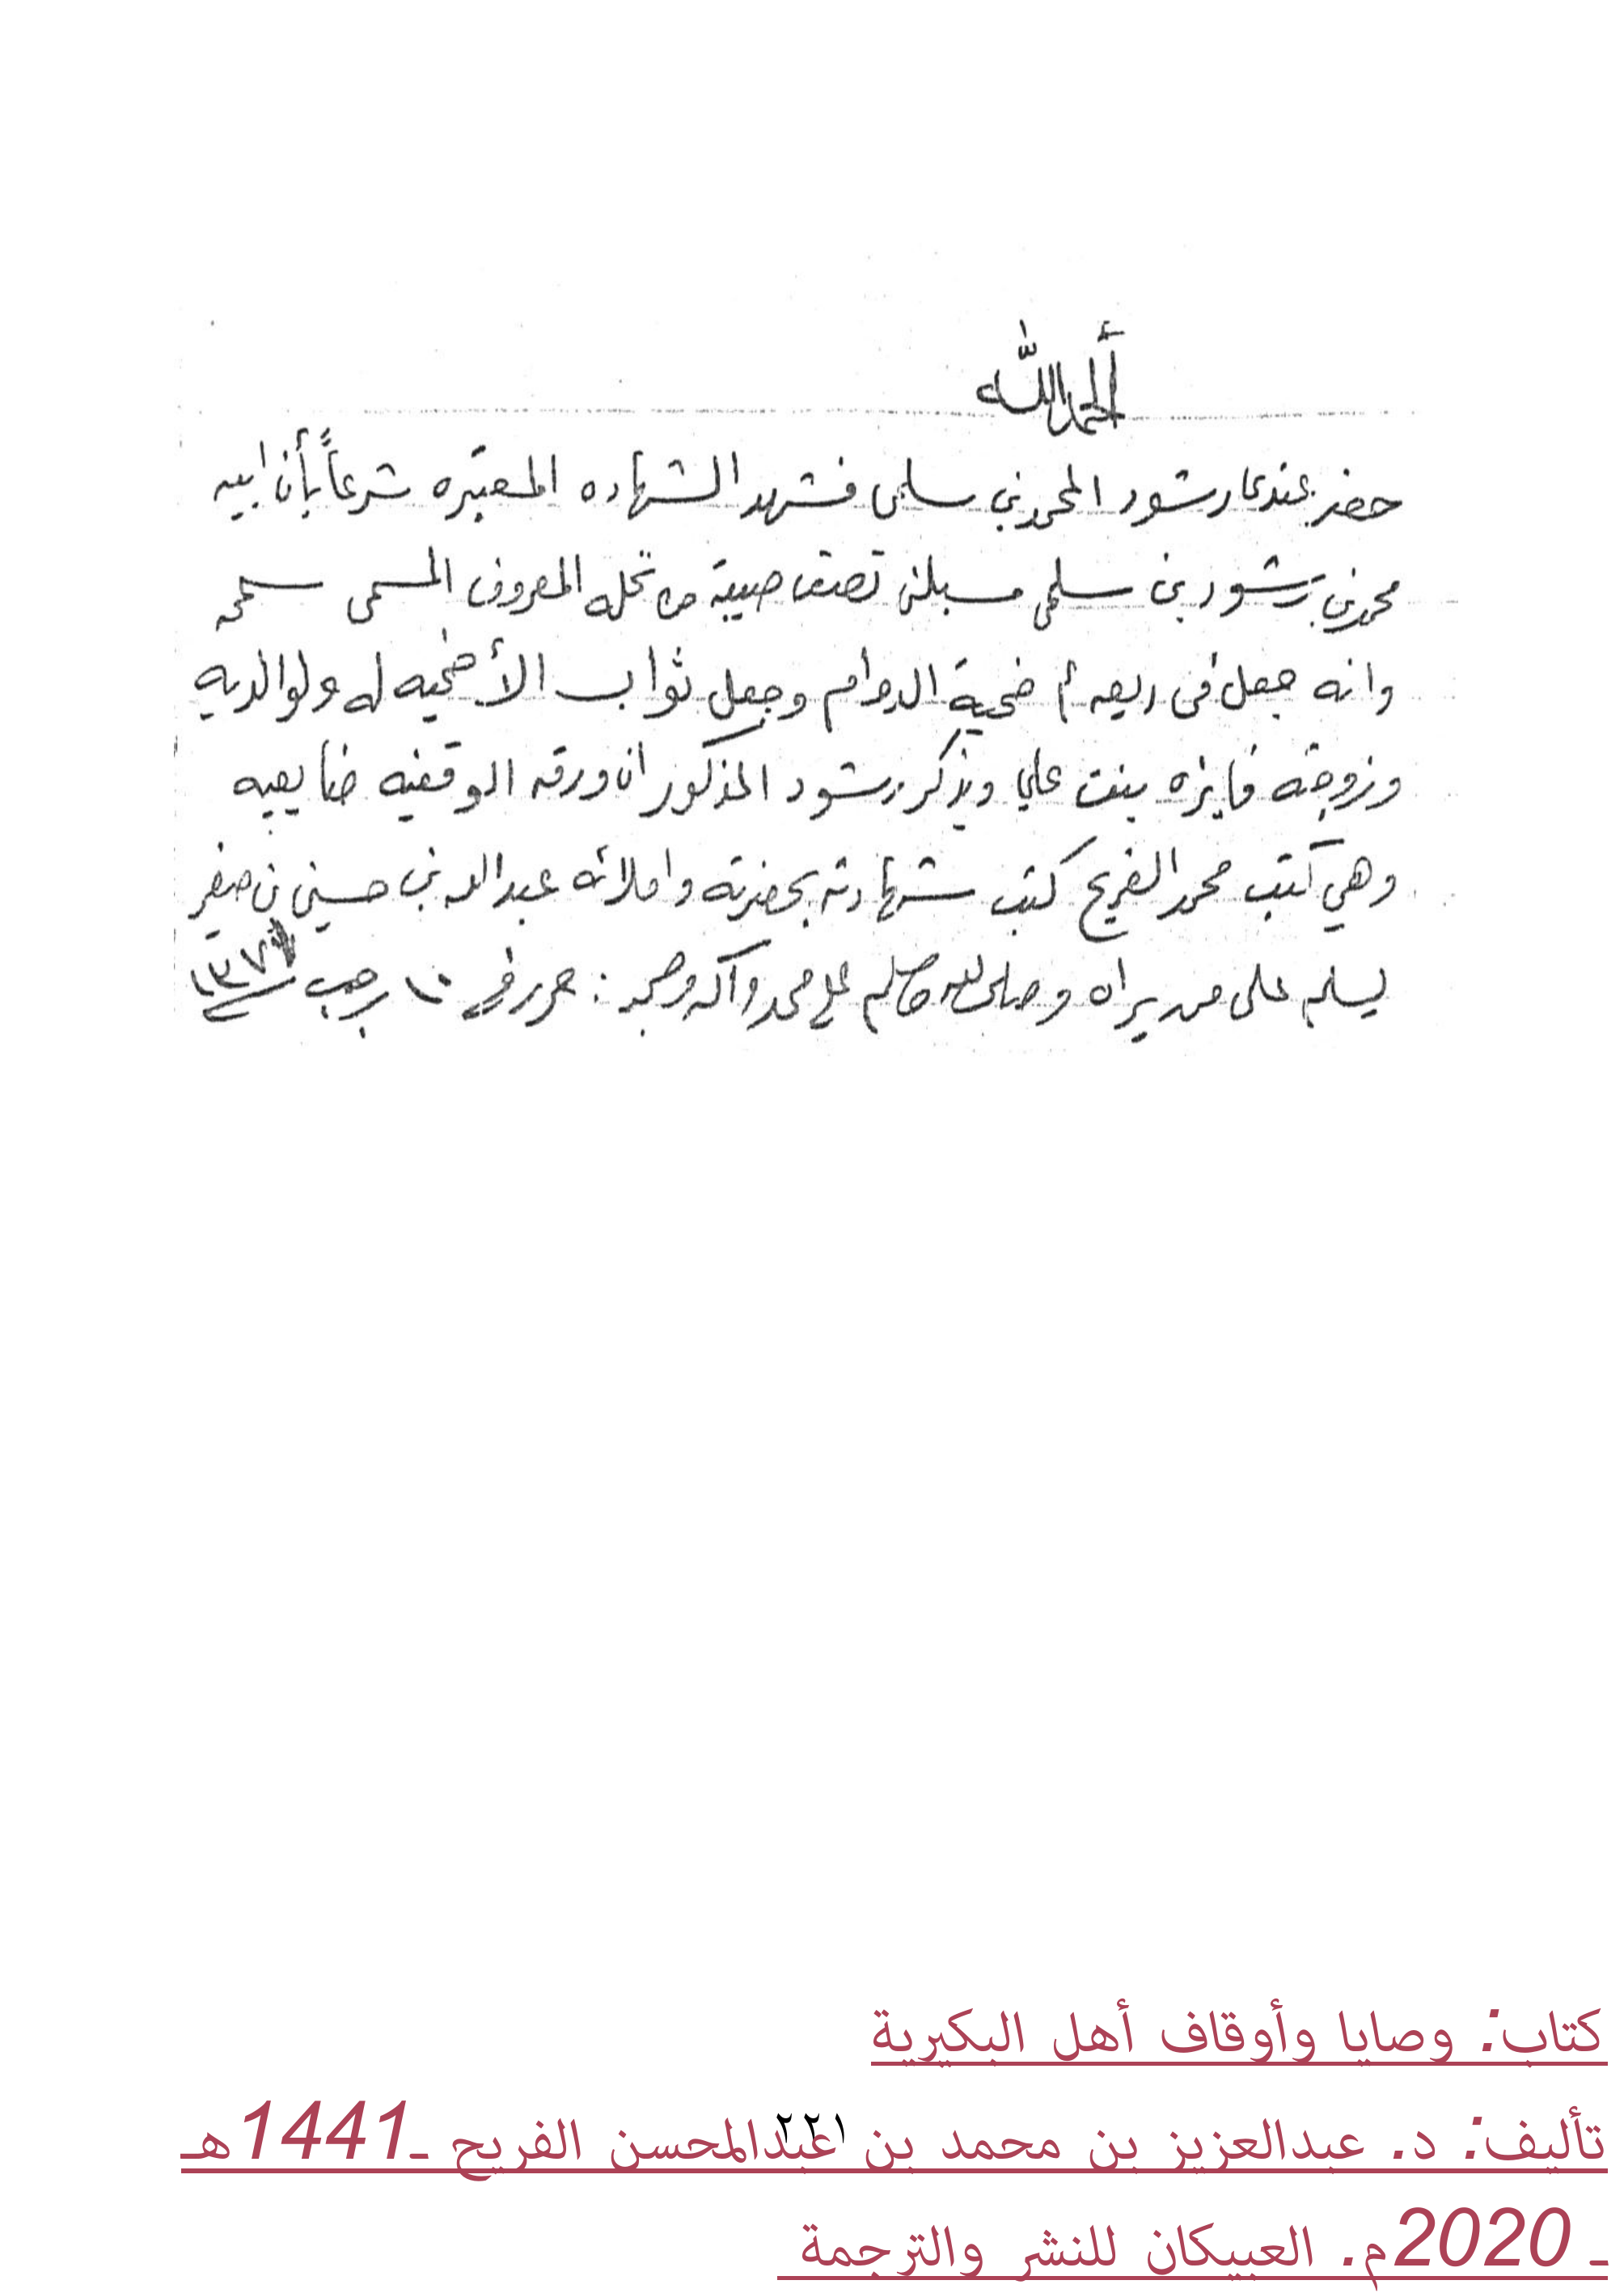 ألحمد لله
حضر عندي رشود المحمد بن سلمى فشهد الشهاده المعتبره شرعاً بأن ابيه
محمد بن رشود بن سلمى مسبلن نصف صيبة من نخله المعروف المسمى سمحه
وانه جعل في ريعه أضحية الدوام وجعل ثواب الأضحيه له ولوالديه
وزوجته فايزه بنت علي ويذكر رشود المذكور ان ورقه الوقفيه ضايعيه
وهي كتب محمد الفريح كتب شهادته بحضرته واملائه عبدالله بن حسين بن صغير
ليسلم على من يراه وصلى الله وسلم على محمد وآله وصحبه : حرر في ١٠ رجب
كتاب: وصايا وأوقاف أهل البكيرية
تأليف: د. عبدالعزيز بن محمد بن عبدالمحسن الفريح ـ1441هـ
٢٢١
ـ 2020م. العبيكان للنشر والترجمة